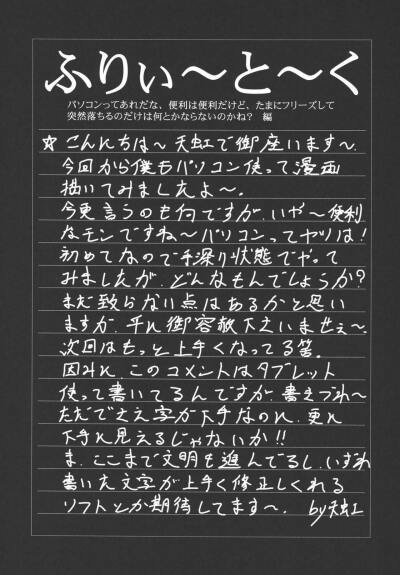 ふりぃ〜と〜く
パソコンってあれだな、便利は便利だけど、たまにフリーズして
突然落ちるのだけは何とかならないのかね？ 編
☆こんにちは〜天虹で御座います〜、
今回から僕もパソコン使って漫画
描いてみましたよ〜。
今更言うのも何ですが、いや〜便利
なモンですね〜パソコンってヤツは!
初めてなので手探り状態でやって
みましたが、どんなもんでしょうか?
まだ致らない点はあるかと思い
ますが、平に御容赦下さいませぇ〜。
次回はもっと上手くなってる筈。
因みに、このコメントはタブレット
使って書いてるんですが、書きづれ〜
ただでさえ文字が下手なのに、更に
下手に見えるじゃないか!!
ま、ここまで文明も進んでるし、いずれ
書いた文字が上手く修正しくれる
ソフトとか期待してます〜。 by天虹